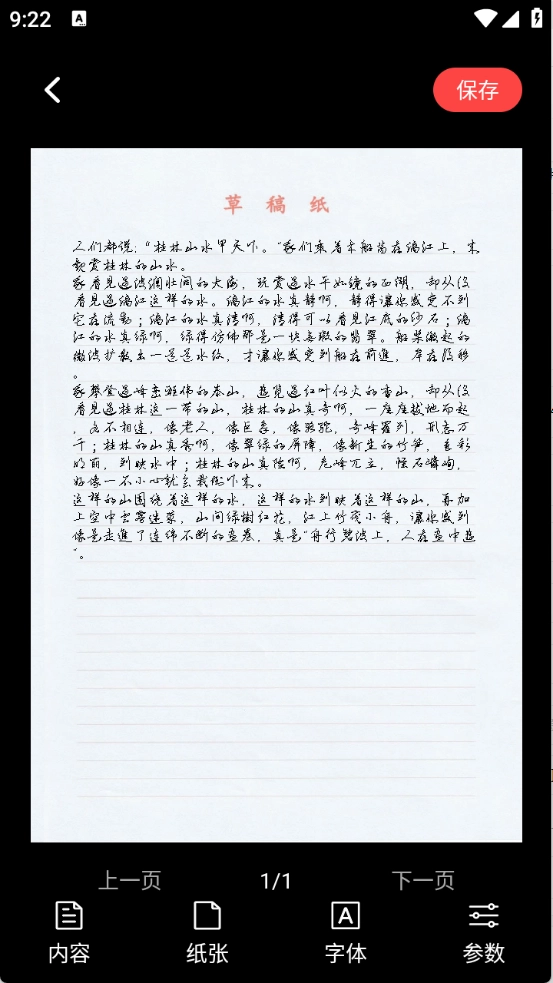 9:22
保存
草稿纸
人们都说："桂林山水甲天下。"我们乘着木船荡在漓江上，来
观赏桂林的山水。
我看见过波澜壮阔的大海，玩赏过水平如镜的西湖，却从没
看见过漓江这样的水。漓江的水真静啊，静得让你感受不到
它在流动；漓江的水真清啊，清得可以看见江底的沙石；漓
江的水真绿啊，绿得仿佛那是一块无瑕的翡翠。船桨激起的
微波扩散出一道道水纹，才让你感受到船在前进，岸在后移
。
我攀登过峰峦雄伟的泰山，游览过红叶似火的香山，却从没
看见过桂林这一带的山，桂林的山真奇啊，一座座拔地而起
，各不相连，像老人，像巨象，像骆驼，奇峰罗列，形态万
千；桂林的山真秀啊，像翠绿的屏障，像新生的竹笋，色彩
明丽，倒映水中；桂林的山真险啊，危峰兀立，怪石嶙峋，
好像一不小心就会栽倒下来。
这样的山围绕着这样的水，这样的水倒映着这样的山，再加
上空中云雾迷蒙，山间绿树红花，江上竹筏小舟，让你感到
像是走进了连绵不断的画卷，真是"舟行碧波上，人在画中游
"。
上一页
1/1
下一页
内容
纸张
字体
参数